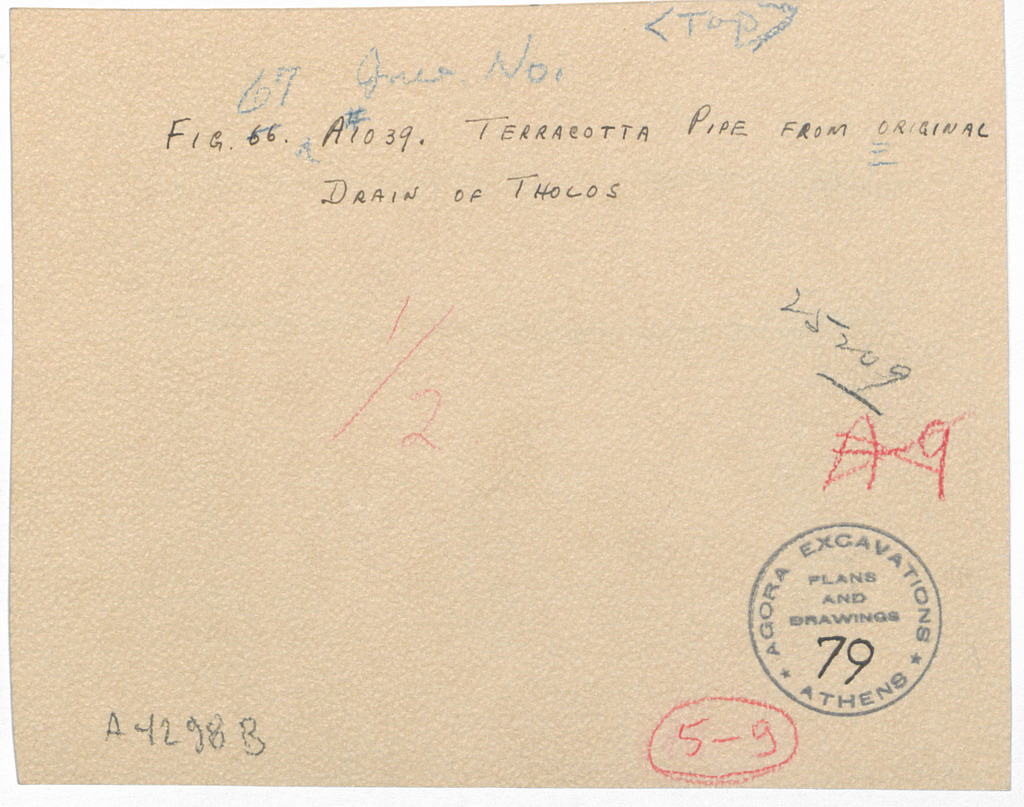 <TOP>
67 No.
FIG. 66. A1039. TERRACOTTA PIPE FROM ORIGINAL
DRAIN OF THOLOS
1/2
25209
A-9
AGORA EXCAVATIONS
PLANS
AND
DRAWINGS
79
★ ATHENS ★
5-9
A 4298 B